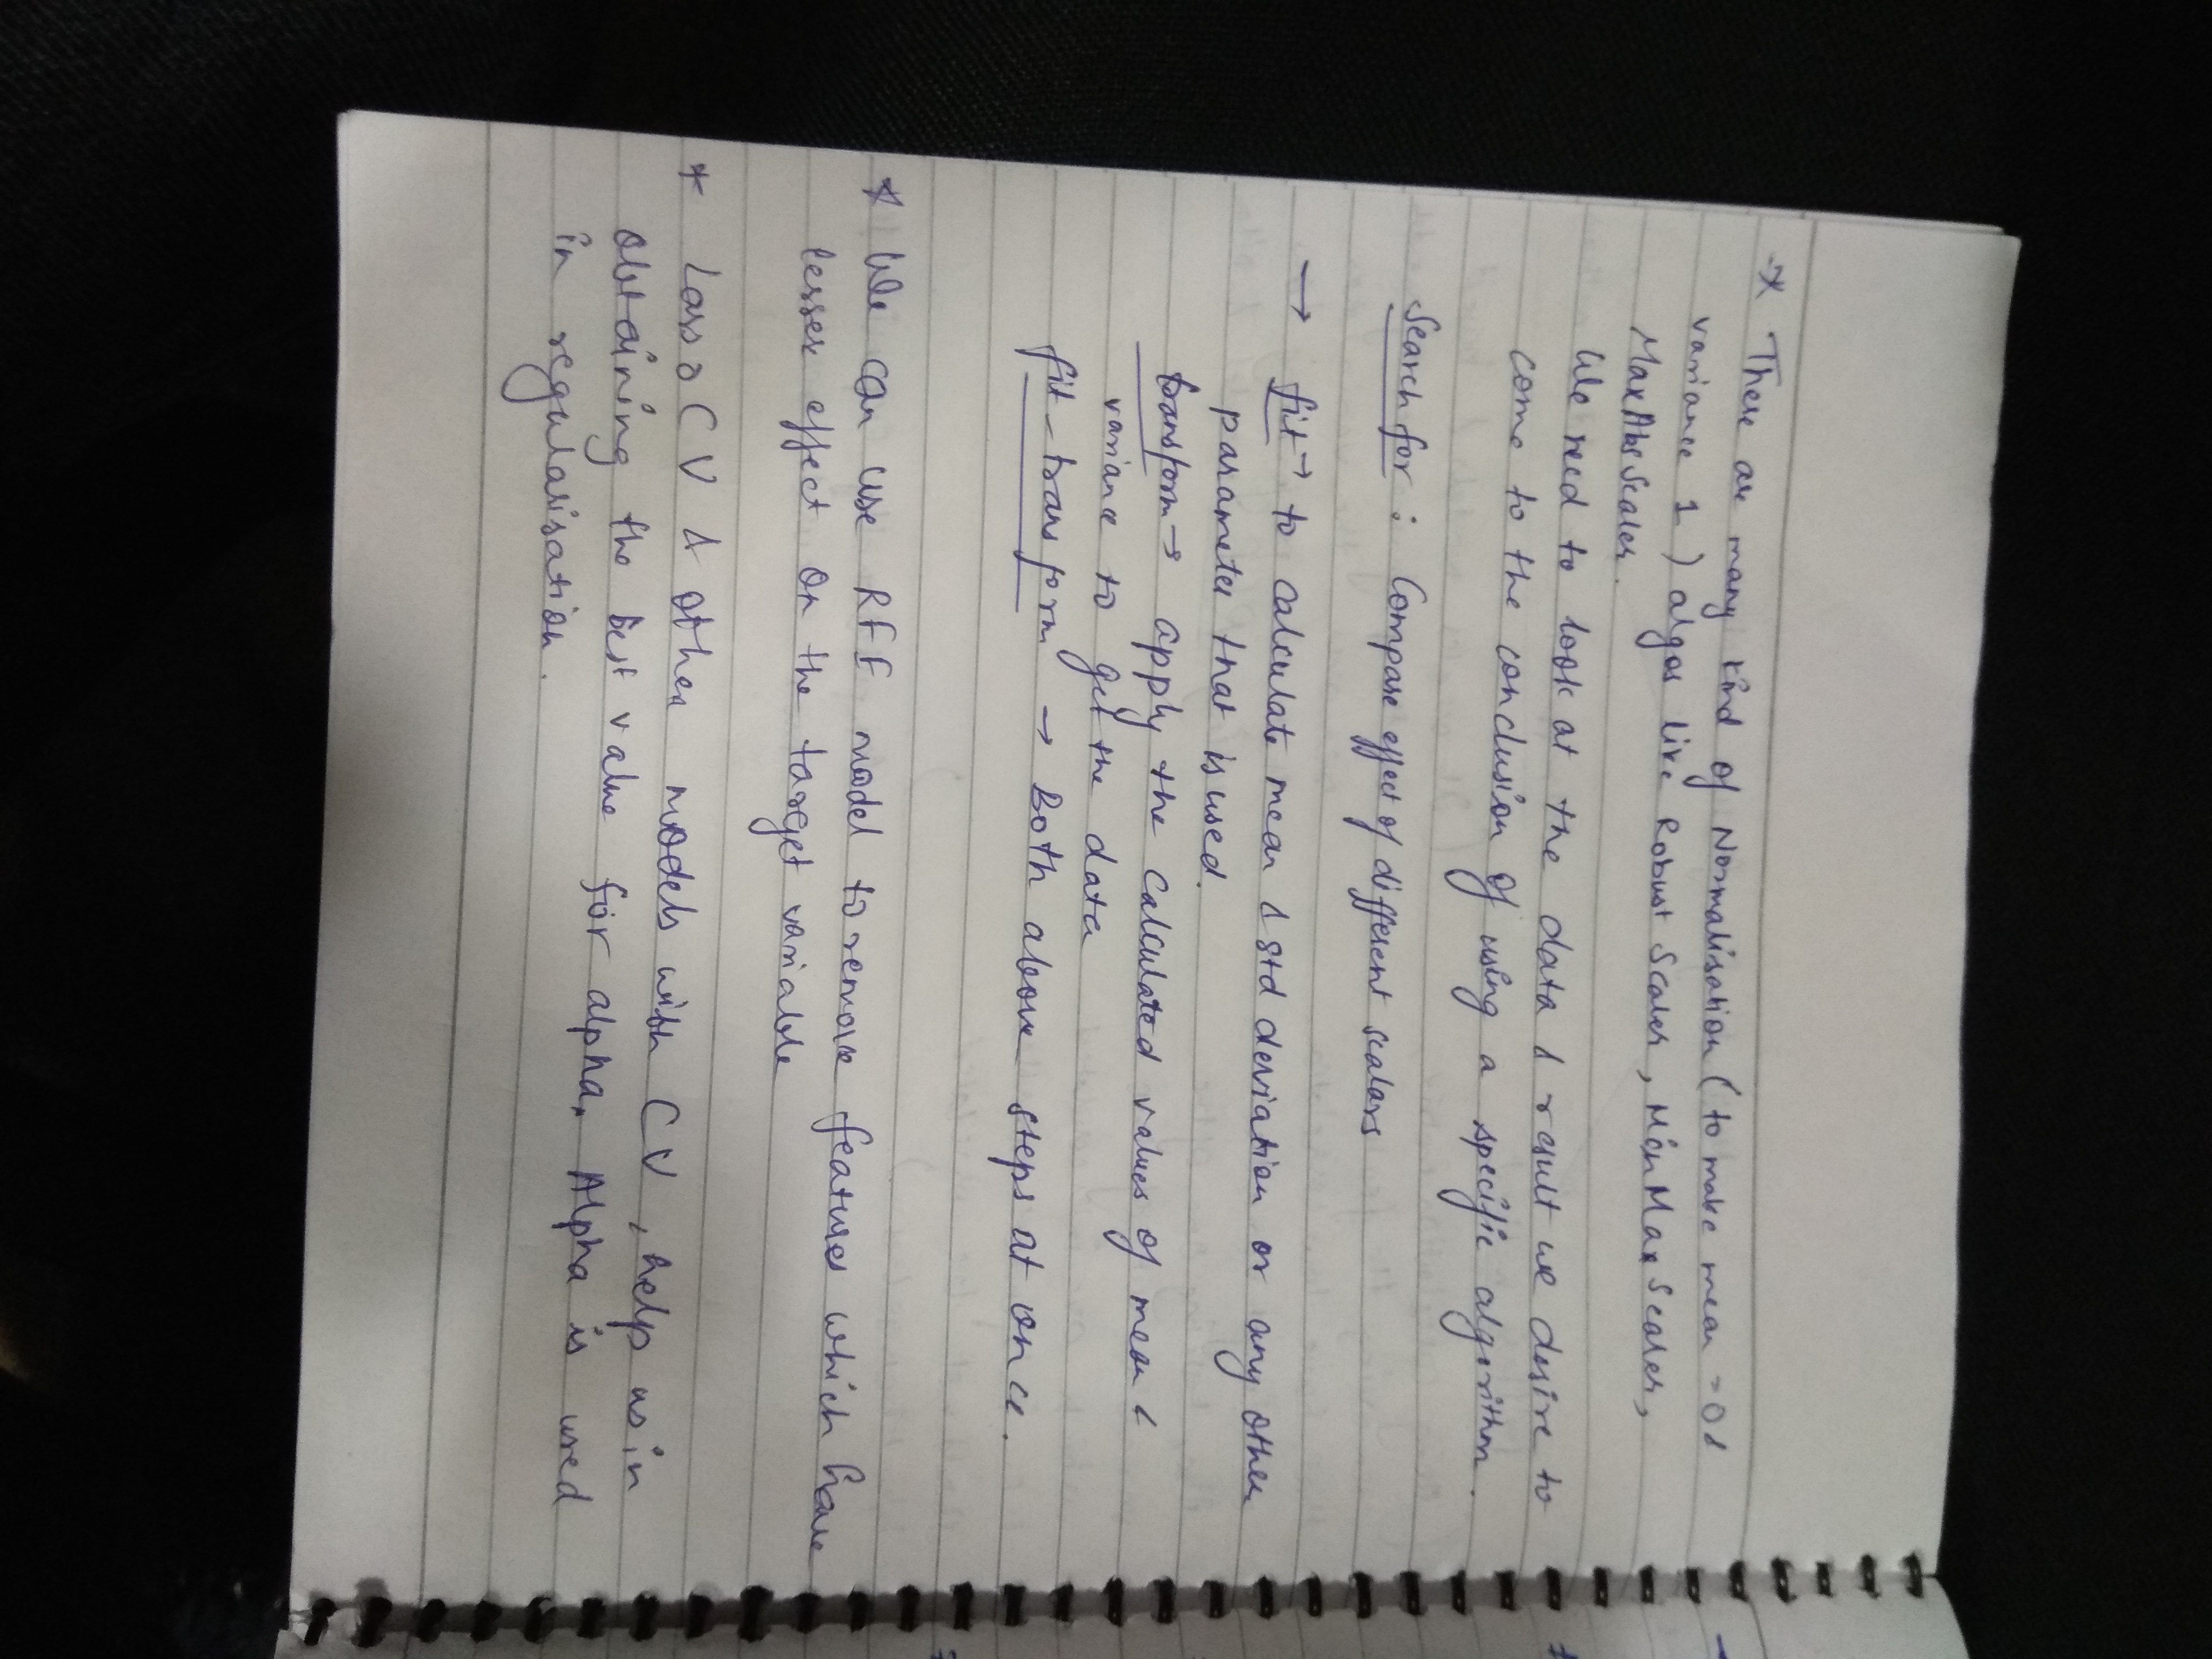 * There are many kind of Normalisation (to make mean = 0 &
variance 1) algos like Robust Scaler, MinMaxScaler,
MaxAbsScaler.
We need to look at the data & result we desire to
come to the conclusion of using a specific algorithm.
Search for : Compare effect of different scalars
→ fit → to calculate mean & std deviation or any other
parameter that is used.
transform → apply the calculated values of mean &
variance to get the data
fit-transform → Both above steps at once.
* We can use RFE model to remove features which have
lesser effect on the target variable
* LassoCV & other models with CV, help us in
obtaining the best value for alpha. Alpha is used
in regularisation.